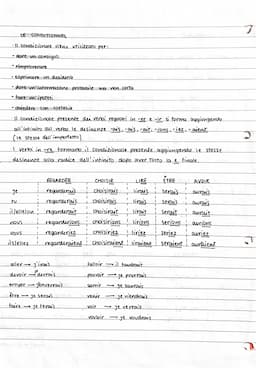 LE CONDITIONNEL
Il condizionale si usa per:
• dare un consiglio
• rimproverare
• esprimere un desiderio
• dare un'informazione probabile ma non certa
• fare un'ipotesi
• chiedere con cortesia
Il condizionale presente dei verbi regolari in -er e -ir si forma aggiungendo
all'infinito del verbo le desinenze -ais, -ais, -ait, -ions, -iez, -aient.
(le stesse dell'imperfetto)
I verbi in -re formano il condizionale presente aggiungendo le stesse
desinenze alla radice dell'infinito dopo aver tolto la e finale.
REGARDER CHOISIR LIRE ÊTRE AVOIR
je regarderais choisirais lirais serais aurais
tu regarderais choisirais lirais serais aurais
il/elle/on regarderait choisirait lirait serait aurait
nous regarderions choisirions lirions serions aurions
vous regarderiez choisiriez liriez seriez auriez
ils/elles regarderaient choisiraient liraient seraient auraient
aller → j'irais falloir → il faudrait
devoir → devrais pouvoir → je pourrais
envoyer → j'enverrais savoir → je saurais
être → je serais venir → je viendrais
faire → je ferais voir → je verrais
vouloir → je voudrais